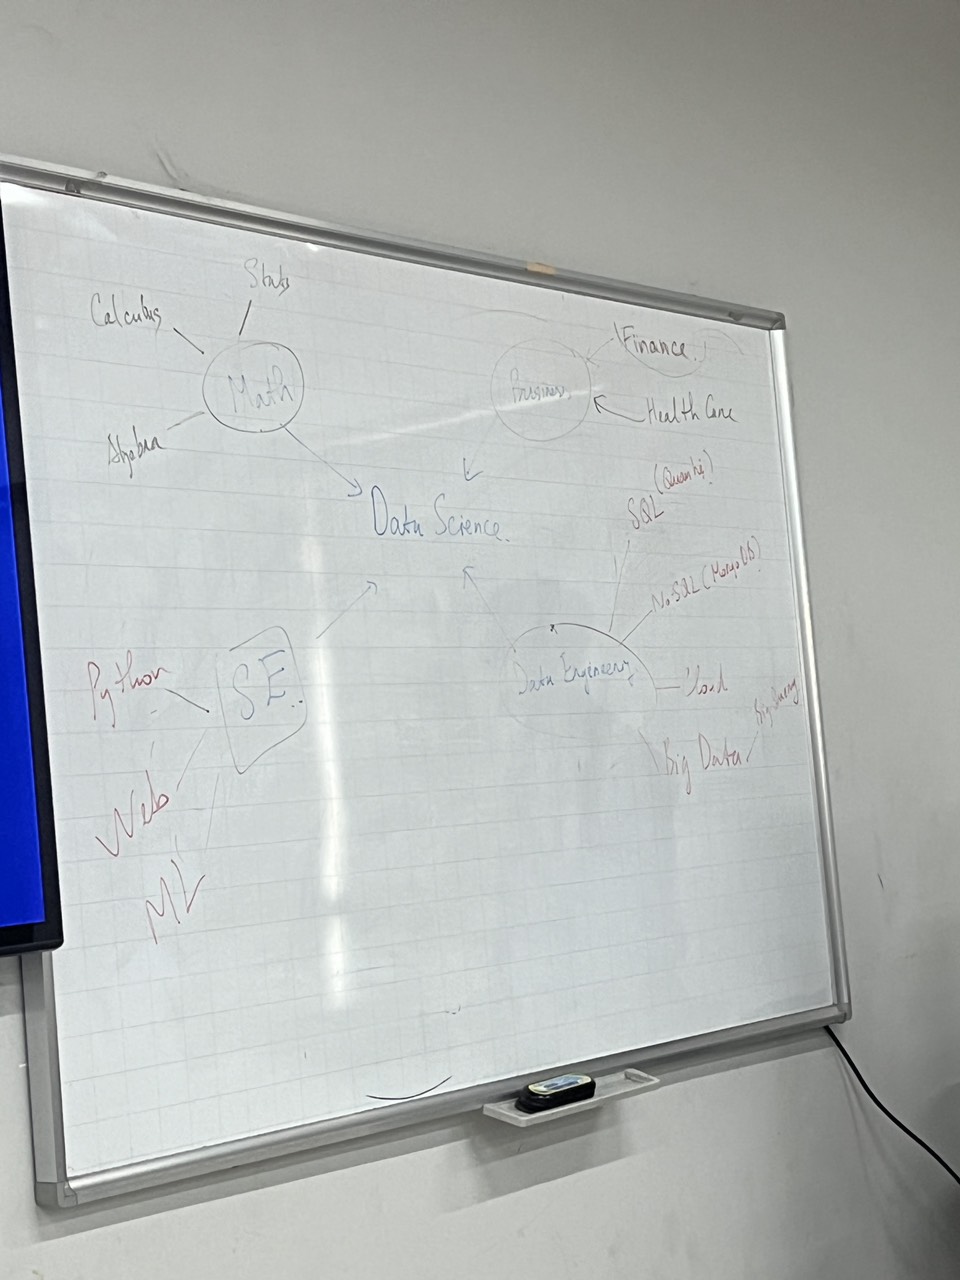 Stats
Calculus
Math
Algebra
Finance.
Business
Health Care
Data Science.
SQL
NoSQL (MongoDB)
Python
SE..
Data Engineery
Cloud
Big Data
Big Query
Web
ML